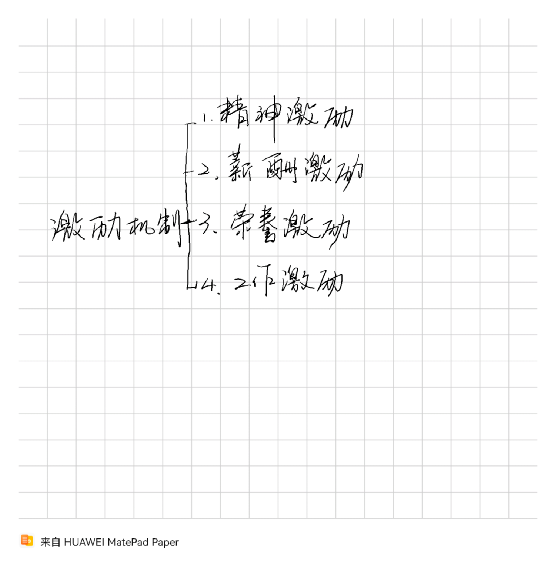 1. 精神激励
2. 薪酬激励
激励机制
3. 荣誉激励
4. 工作激励
来自 HUAWEI MatePad Paper